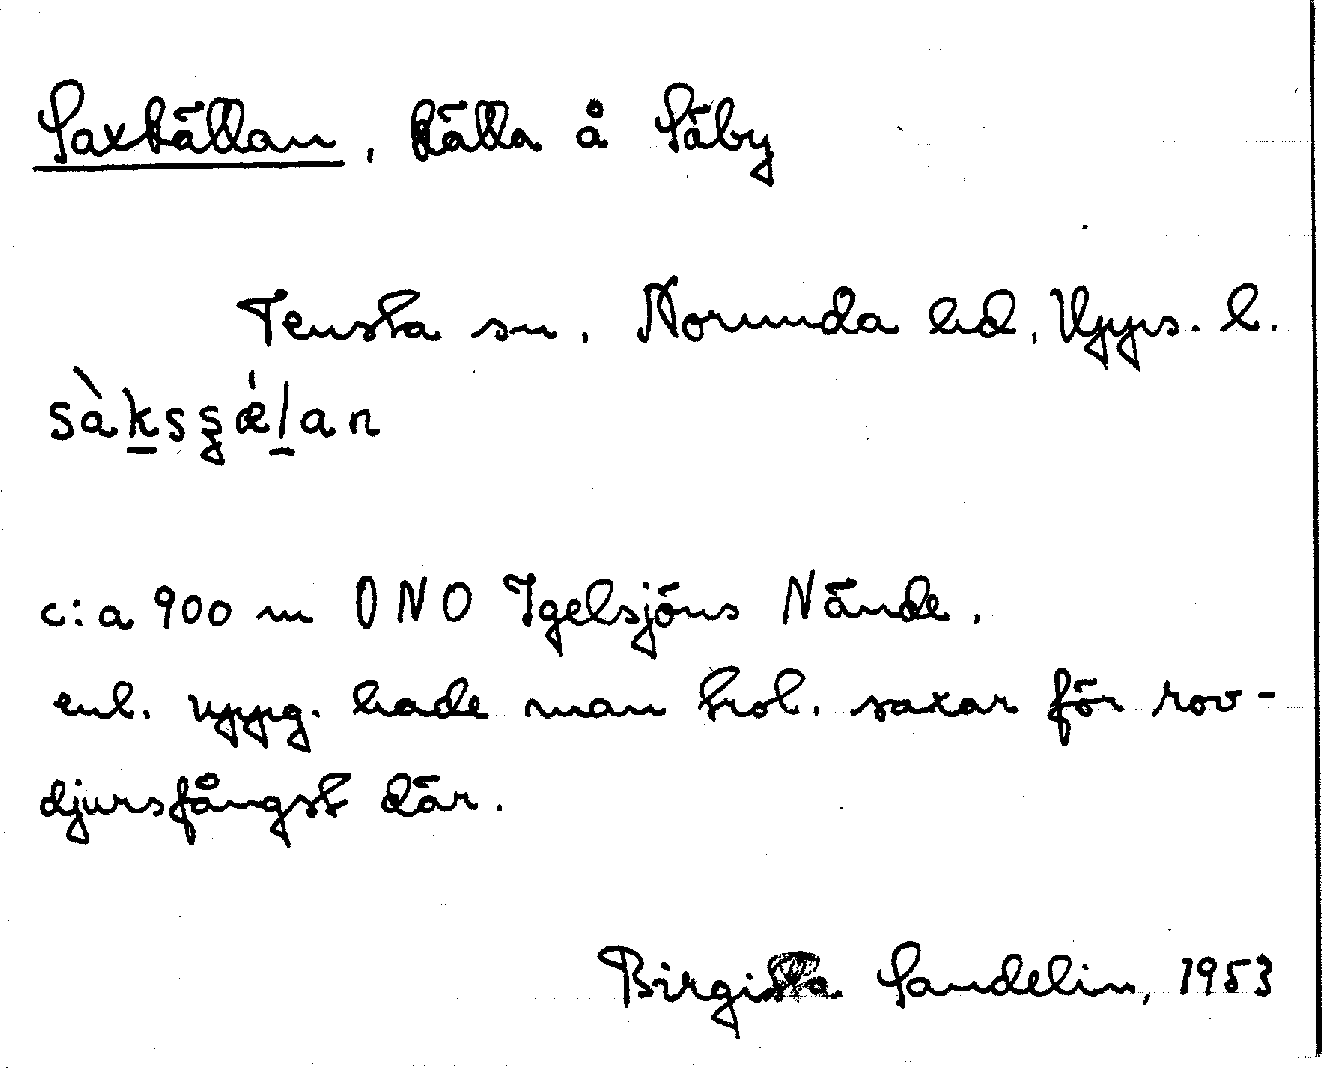 Saxkällan, källa å Säby
Tensta sn, Norunda hd, Upps. l.
sàksʂǽlan
c:a 900 m ONO Igelsjöns N ände.
enl. uppg. hade man trol. saxar för rov-
djursfångst där.
Birgitta Sandelin, 1953